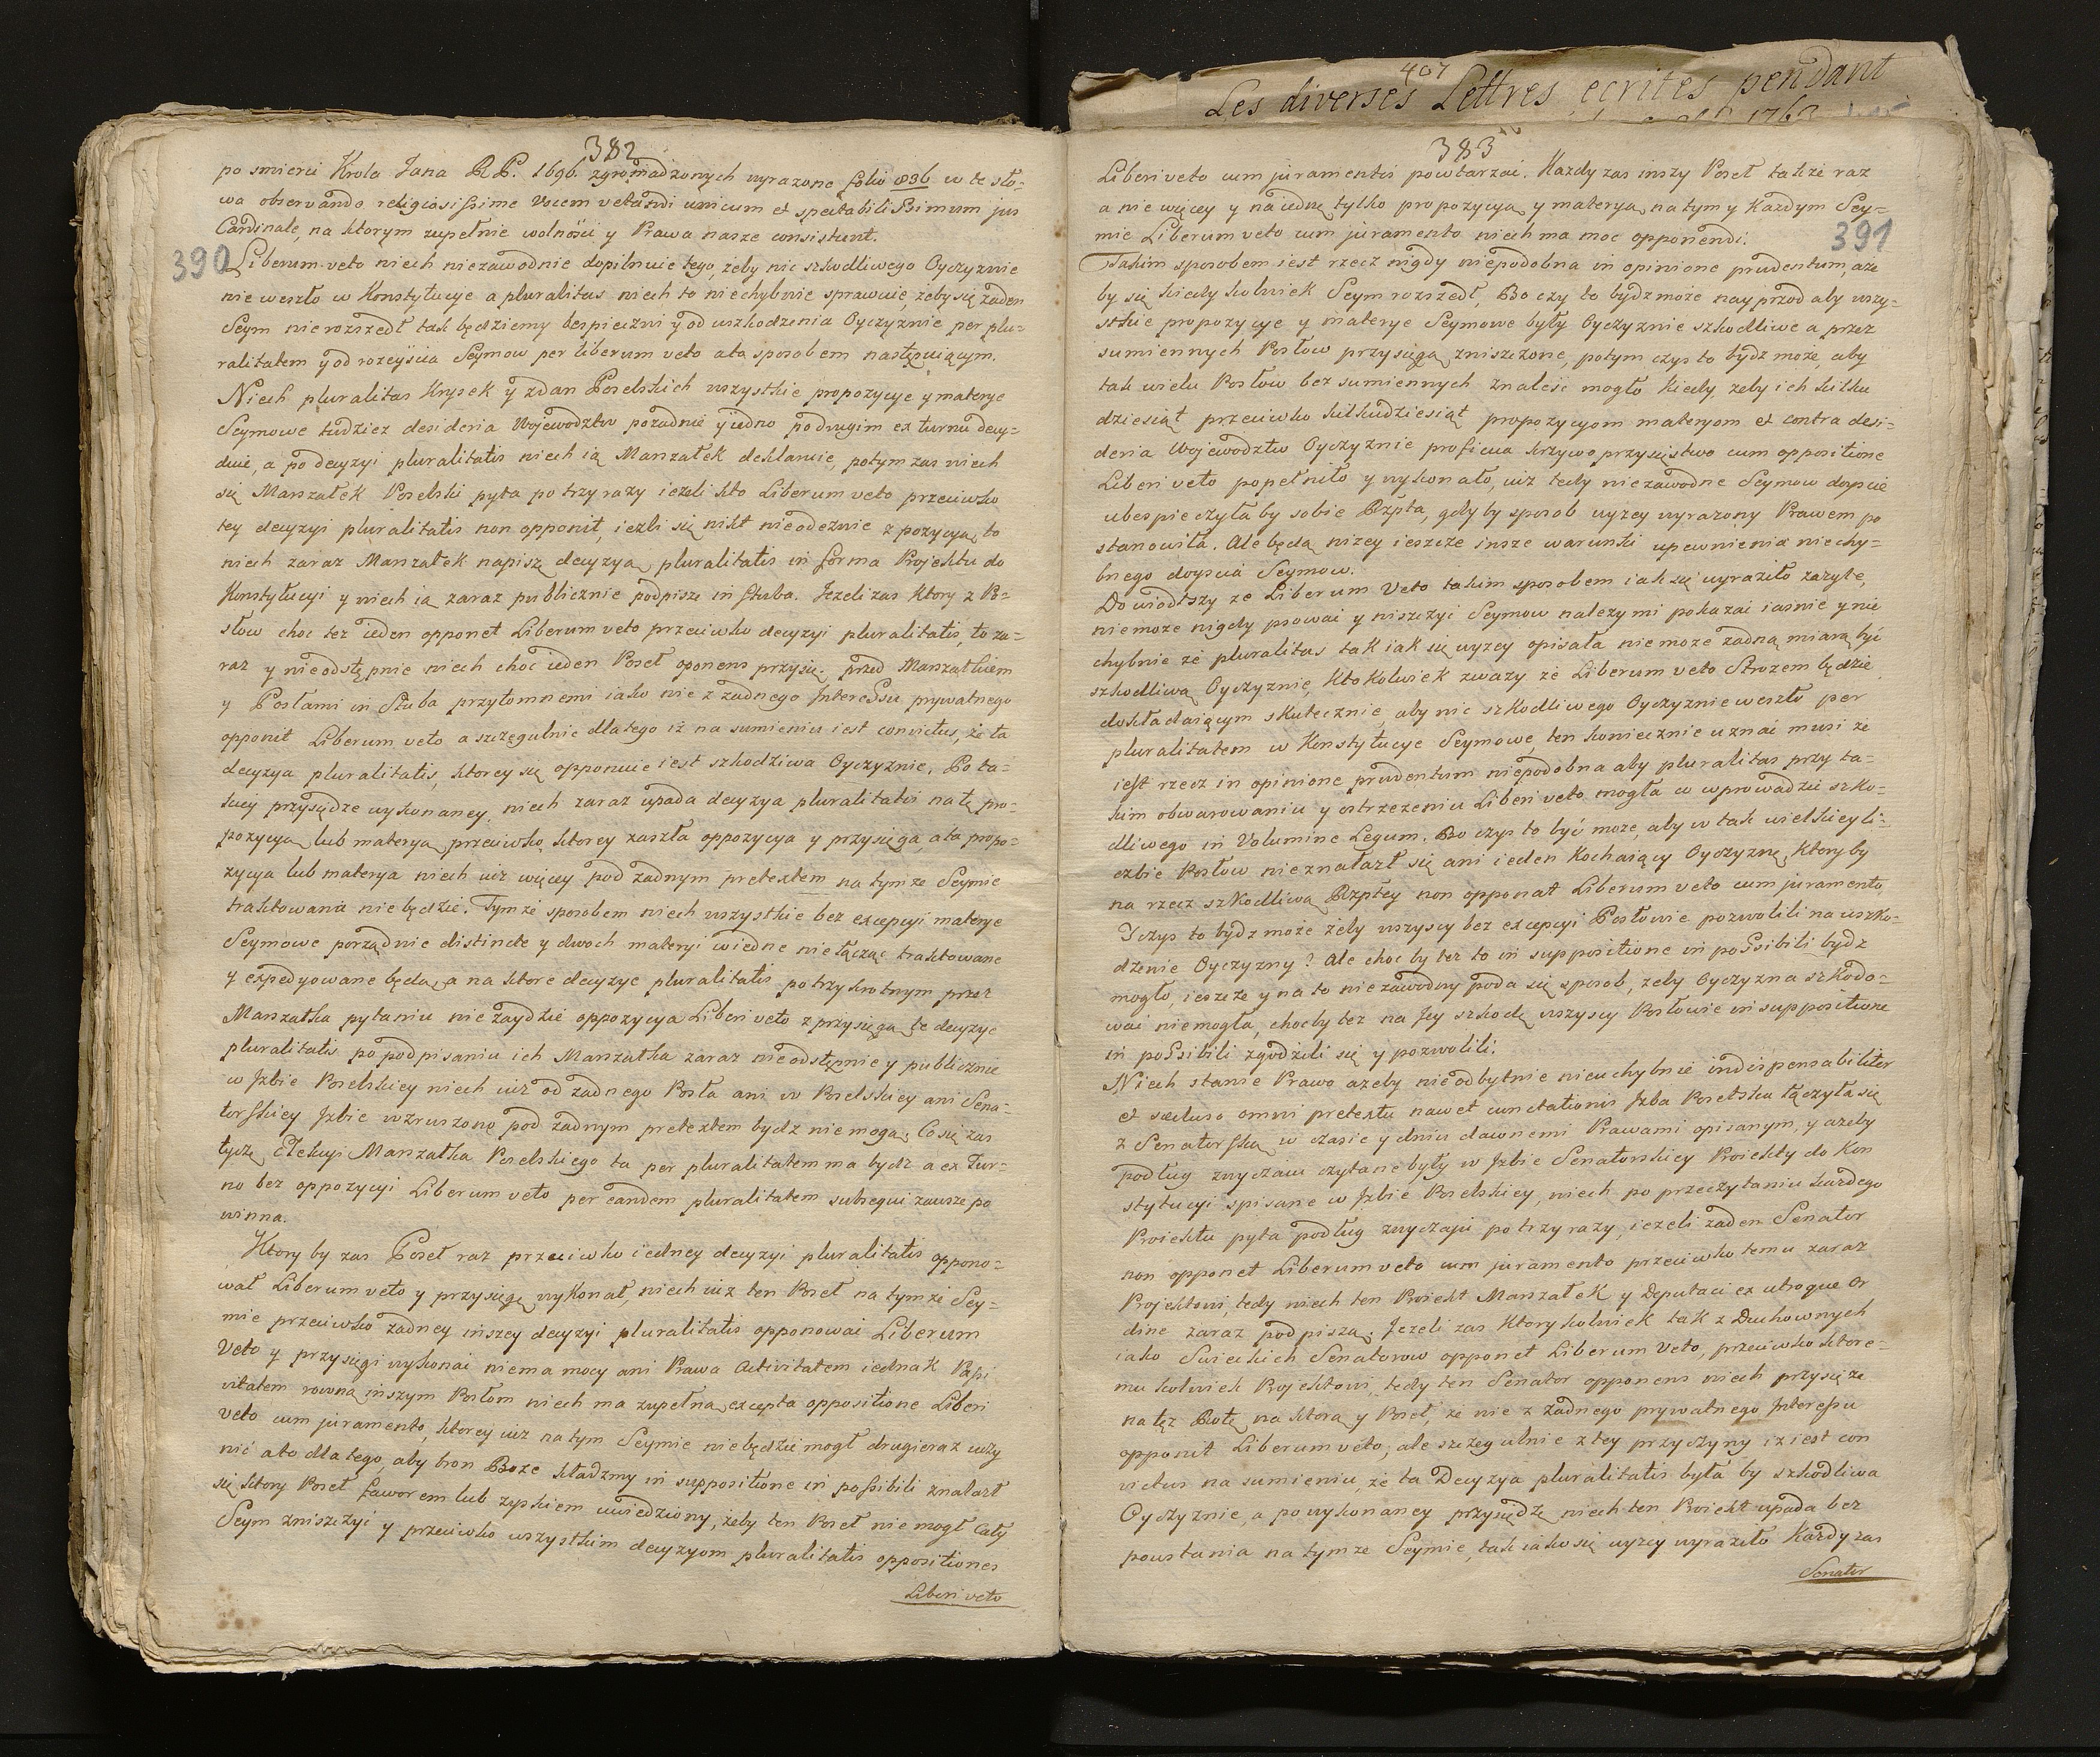 382
po smierci Krola Jana R P. 1696. zgromadzonych wyrazone folio 836 w te sło=
wa observando religiosissime Vocem vetandi unicum et spectabilissimum jus
Cardinale, na ktorym zupełnie wolnosci y Prawa nasze consistunt.
390
Liberum veto niech niezawodnie dopilnuie tego, zeby nic szkodliwego Oyczyznie
nie weszło w Konstytucye a pluralitas niech to niechybnie sprawuie, zeby się zaden
Seym nierozszedł tak będziemy bespieczni y od uszkodzenia Oyczyznie per plu=
ralitatem y od rozeyscia Seymow per liberum veto a to sposobem następuiącym.
Niech pluralitas Krysek y zdan Poselskich wszystkie propozycye y materye
Seymowe tudziez desideria Wojewodztw porzadnie y iedno po drugim ex turnu decy=
duie, a po decyzyi pluralitatis niech ią Marszałek deklaruie, potym zas niech
się Marszałek Poselski pyta po trzy razy iezeli kto Liberum veto przeciwko
tey decyzyi pluralitatis non opponit, iezli się nikt nieodezwie z pozycyą, to
niech zaraz Marszałek napisze decyzyą pluralitatis in forma Projektu do
Konstytucyi y niech ią zaraz publicznie podpisze in stuba. Jezeli zas ktory z Po=
słow choc tez ieden opponet Liberum veto przeciwko decyzyi pluralitatis, to za=
raz y nieodstępnie niech choc ieden Poseł oponens przysię. przed Marszałkiem
y Posłami in Stuba przytomnemi iako nie z zadnego Interessu prywatnego
opponit Liberum veto a szczegulnie dla tego iz na sumieniu iest convictus, ze ta
decyzya pluralitatis, ktorey się opponuie iest szkodziwa Oyczyznie. Po ta=
kiey przysiędze wykonaney, niech zaraz upada decyzya pluralitatis na tę pro=
pozycyą lub materyą przeciwko ktorey zaszła oppozycya y przysięga, a ta propo=
zycya lub materya niech iuz więcey pod zadnym pretextem na tymze Seymie
traktowania niebędzie. Tymze sposobem niech wszystkie bez excepcyi materye
Seymowe porządnie distincte y dwoch materyi w iedne nie łącząc traktowane
y expedyowane będą, a na ktore decyzye pluralitatis po trzykrotnym przez
Marszałka pytaniu nie zaydzie oppozycya Liberi veto z przysięgą te decyzye
pluralitatis po podpisaniu ich Marszałka zaraz nieodstępnie y publicznie
w Jzbie Poselskiey niech iuz od zadnego Posła ani w Poselskiey ani Sena=
torskiey Jzbie wzruszone pod zadnym pretextem bydz niemogą. Co się zas
tycze Elekcyi Marszałka Poselskiego ta per pluralitatem ma bydz a ex Tur=
no bez oppozycyi Liberum veto per eandem pluralitatem subsequi zawsze po
winna.
Ktory by zas Poseł raz przeciwko iedney decyzyi pluralitatis oppono=
wał Liberum veto y przysięgę wykonał, niech iuz ten Poseł na tymze Sey=
mie przeciwko zadney inszey decyzyi pluralitatis opponowac Liberum
Veto y przysięgi wykonac niema mocy ani Prawa Activitatem iednak Passi
vitatem rowną inszym Posłom niech ma zupełną, excepta oppositione Liberi
Veto cum juramento, ktorey iuz na tym Seymie niebędzie mogł drugi raz uczy
nic a to dla tego, aby bron Boze kładzmy in suppositione in possibili znalazł
się ktory Poseł faworem lub zyskiem uwiedziony, zeby ten Poseł nie mogł cały
Seym zniszczyć y przeciwko wszystkim decyzyom pluralitatis oppositiones
Liberi veto
407
Les diverses Lettres ecrites pendant
1763
383
Liberi veto cum juramentis powtarzac. Kazdy zas inszy Poseł takze raz
a nie więcey y na iednę tylko propozycyą y materyą na tym y Kazdym Sey=
mie Liberum veto cum juramento niech ma moc opponendi.
391
Takim sposobem iest rzecz nigdy niepodobna in opinione prudentum, aze
by się kiedykolwiek Seym rozszedł, Bo czy to bydz może nayprzod aby wszy=
stkie propozycye y materye Seymowe były Oyczyznie szkodliwe a przez
sumiennych Posłow przysięgą zniszczone, potym czyz to bydz może, aby
tak wielu Posłow bez sumiennych znalesc mogło kiedy, zeby ich kilku
dziesiąt przeciwko kilkudziesiąt propozycyom materyom et contra desi=
deria Wojewodztw Oyczyznie proficua krzywoprzysięstwo cum oppositione
Liberi veto popełniło y wykonało, iuz tedy niezawodne Seymow dopcie
ubespieczyła by sobie Rzpta, gdy by sposob wyzey wyrazony Prawem po
stanowiła. Ale będą nizey ieszcze insze warunki upewnienia niechy=
bnego doyscia Seymow.
Dowiodłszy ze Liberum Veto takim sposobem iak się wyraziło zazyte,
niemoze nigdy psowac y niszczyc Seymow nalezy mi pokazac iasnie y nie
chybnie ze pluralitas tak iak się wyzey opisała niemoze zadną miarą być
szkodliwą Oyczyznie, ktokolwiek zwazy ze Liberum veto Strozem będzie
dokładaiącym skutecznie, aby nic szkodliwego Oyczyznie weszło per
pluralitatem w Konstytucye Seymowe, ten koniecznie uznac musi ze
iest rzecz in opinione prudentum niepodobna aby pluralitas przy ta=
kim obwarowaniu y ostrzezeniu Liberi veto mogła co wprowadzic szko=
dliwego in Volumine Legum. Bo czyz to być moze, aby w tak wielkiey li=
czbie Posłow nieznalazł się ani ieden Kochaiący Oyczyznę, ktory by
na rzecz szkodliwą Rzptey non opponat Liberum veto cum juramento
Y czyz to bydz może żeby wszyscy bez excepcyi Posłowie pozwolili na uszko=
dzenie Oyczyzny? Ale choc by tez to in suppositione in possibili bydz
mogło, ieszcze y na to niezawodny poda się sposob, zeby Oyczyzna szkodo=
wac niemogła, choc by tez na Jey szkodę wszyscy Posłowie in suppositione
in possibili zgodzili się y pozwolili.
Niech stanie Prawo azeby nieodbytnie nieuchybnie indispensabiliter
et secluso omni pretextu nawet cunctationis Jzba Poselska łączyła się
z Senatorską w czasie y dniu dawnemi Prawami opisanym, y azeby
podług zwyczaiu czytane były w Jzbie Senatorskiey Proiekty do Kon
stytucyi spisane w Jzbie Poselskiey, niech po przeczytaniu kazdego
Proiektu pyta podług zwyczaju po trzy razy, iezeli zaden Senator
non opponet Liberum veto cum juramento przeciwko temu zaraz
Projektowi, tedy niech ten Proiekt Marszałek y Deputaci ex utroque Or
dine zaraz podpiszą. Jezeli zas ktorykolwiek tak z Duchownych
iako Swieckich Senatorow opponet Liberum Veto, przeciwko ktore=
mu kolwiek Projektowi, tedy ten Senator opponens niech przysięze
na tęz Rotę, na ktorą y Poseł, ze nie z zadnego prywatnego Interessu
opponit Liberum veto, ale szczegulnie z tey przyczyny iz iest con
victus na sumieniu, ze ta Decyzya pluralitatis była by szkodliwa
Oyczyznie, a po wykonaney przysiędze niech ten Proiekt upada bez
powstania na tymze Seymie, tak iako się wyzey wyraziło Kazdy zas
Senator